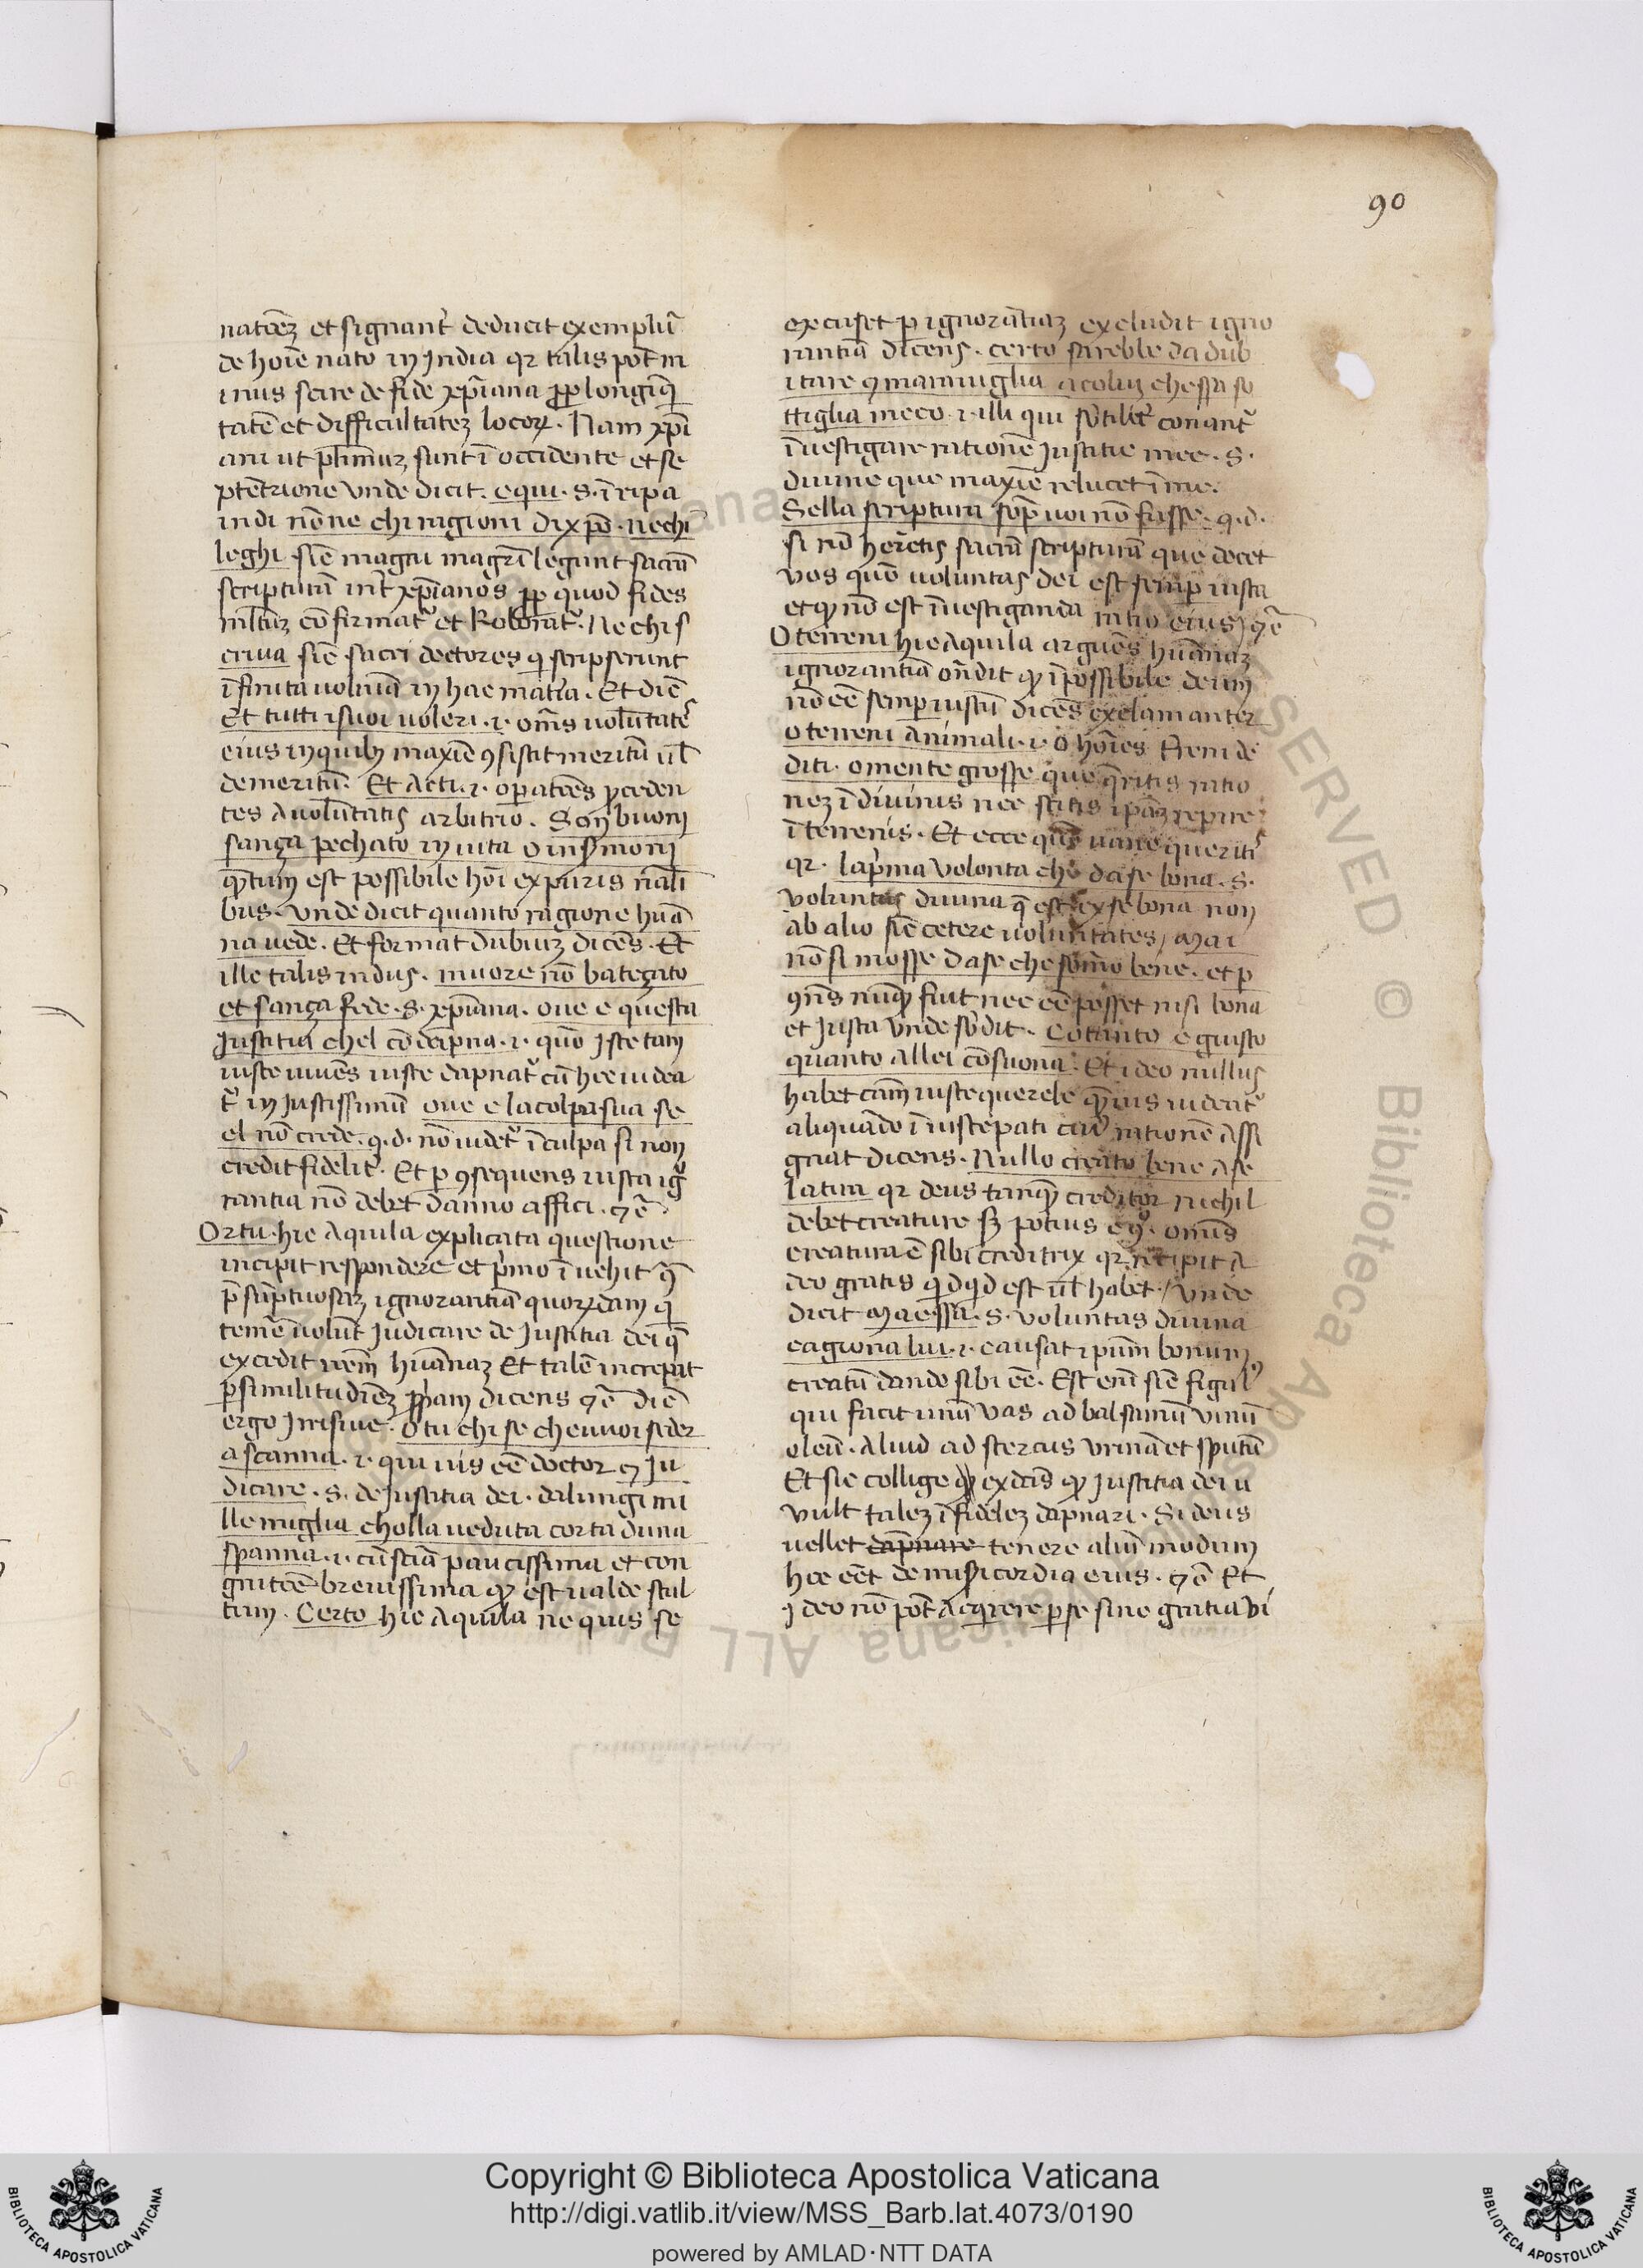 90
natōeꝫ et signant̉ deducit exemplū
de hoīe nato in India qꝛ talis pōt m
inus scire de fide xp̄iana ꝓp̄ longiq̄
tatē et difficultateꝫ locoꝝ. Nam xp̄i
ani ut pl̄imuꝫ sunt ī occidente et se
ptētrione vnde dicit. equi. s. ī ripa
indi nōne chi ragioni di xp̄o. nechi
leghi sic̄ magni magr̄i legunt sacrā
scripturā int̉ xp̄ianos ꝓp̄ quod fides
ml̄tuꝫ cōfirmat̉ et Roborat̉. Ne chi s
criua sic̄ sacri doctores q̄ scripserunt
īfinita uoluīa in hac mat̉ia. Et dic̄
Et tutti i suoi uoleri .i. om̄s uolūtates
eius in quibꝫ maxīe ꝯsistit meritū ul̄
demeritū. Et Acti .i. oꝑatōes ꝓceden
tes a uolūtatis arbitrio. Son buoni
sanҫa pechato in uita o in sermoni
q̄tum est possibile hoī ex puris nāli
bus. vnde dicit quanto ragione huā
na uede. Et format dubiuꝫ dicēs. Et
ille talis indus. muore nō bateҫato
et sanҫa fede .s. xp̄iana. oue e questa
Justitia chel cōdapna .i. quō iste tam
iuste uiuēs iuste dapnat̉ cū hec uidea
t̉ iniustissimū oue e la colpa sua se
el nō crede .q.d. nō uidet̉ ī culpa si non
credit fidelit̉. Et ꝑ ꝯsequens iusta ig̉
rantia nō debet damno affici. ꝛc̄.
O r tu. hic Aquila explicata questione
incipit respondere et p̉mo īuehit ꝯ̄
p̄sūptuosaꝫ ignorantiā quorūdam q̄
temē uolūt judicare de justitia dei q̄
excedit rōem huānaꝫ Et talē increpat
ꝑ similitudīeꝫ ꝓp̄am dicens ꝛc̄ dic̄
ergo Irrisiue. O tu chi se che uuoi seder
a scanna .i. qui uis eē doctor ꝛ ju
dicare .s. de justitia dei. da lungi mi
lle miglia cholla ueduta corta duna
spanna .i. cū sciā paucissima et con
gnitōe breuissima qꝫ est ualde stul
tum. Certo hic Aquila ne quis se
excuset ꝑ ignorātiaꝫ excludit igno
rantiā dicens. certo sarebbe da dub
itare ꝯ marauiglia a colui che ssi so
ttiglia meco .i. illi qui sb̉tilit̉ conant̉
īuestigare rationē justitie mee .s.
diuine que maxīe relucet ī me.
Se lla scriptura sop̄ uoi nō fusse .q.d.
si nō heretis sacrā scripturā que docet
vos quō uoluntas dei est semꝑ iusta
et qꝫ nō est īuestiganda ratio eius / ꝛc̄
O terreni hic Aquila arguēs huānaꝫ
ignorantiā on̄dit qꝫ īpossibile deum
nō eē semper iustū dicēs exclamanter
o terreni animali .i. o hoīes terre de
diti. o mente grosse que q̄ritis ratio
neꝫ ī diuinis nec scitis ip̄aꝫ reperire
ī terrenis. Et ecce quō uane querit̉
qꝛ. la p̉ma volonta che da se bona .s.
voluntas diuina q̄ est ex se bona non
ab alio sic̄ cetere uoluntates / Mai
nō si mosse da se che sōmo bene. et ꝑ
ꝯn̄s nūqꝫ fuit nec eē posset nisi bona
et justa vnde sb̉dit. Cotanto e giusto
quanto Allei cōsuona. Et ideo nullus
habet cām iuste querele q̄uis uideat̉
aliquādo ī iuste pati cuiꝰ rationē Assi
gnat dicens. Nullo creato bene A se
la tira qꝛ deus tanqꝫ creditor nichil
debet creature sꝫ potius eꝯ̉. omīs
creatura ē sibi creditrix qꝛ recipit A
deo gratis qd̄qd̄ est ul̄ habet. / vnde
dicit Ma essa .s. voluntas diuina
cagiona lui .i. causat ip̄um bonum
creatū dando sibi eē. Est enī sic̄ figulꝰ
qui facit unū vas ad balsamū vinū
oleū. Aliud ad stercus vrinā et sputū
Et sic collige qꝫ ex dc̄is qꝫ justitia dei u
vult taleꝫ īfideleꝫ dapnari. Si deus
uellet dap̄nare tenere aliū modum
hec eēt de misericordia eius. ꝛc̄ Et
ideo nō pōt Acq̉rere ꝑ se sine gratia di
Copyright © Biblioteca Apostolica Vaticana
http://digi.vatlib.it/view/MSS_Barb.lat.4073/0190
powered by AMLAD·NTT DATA
BIBLIOTECA APOSTOLICA VATICANA
BIBLIOTECA APOSTOLICA VATICANA